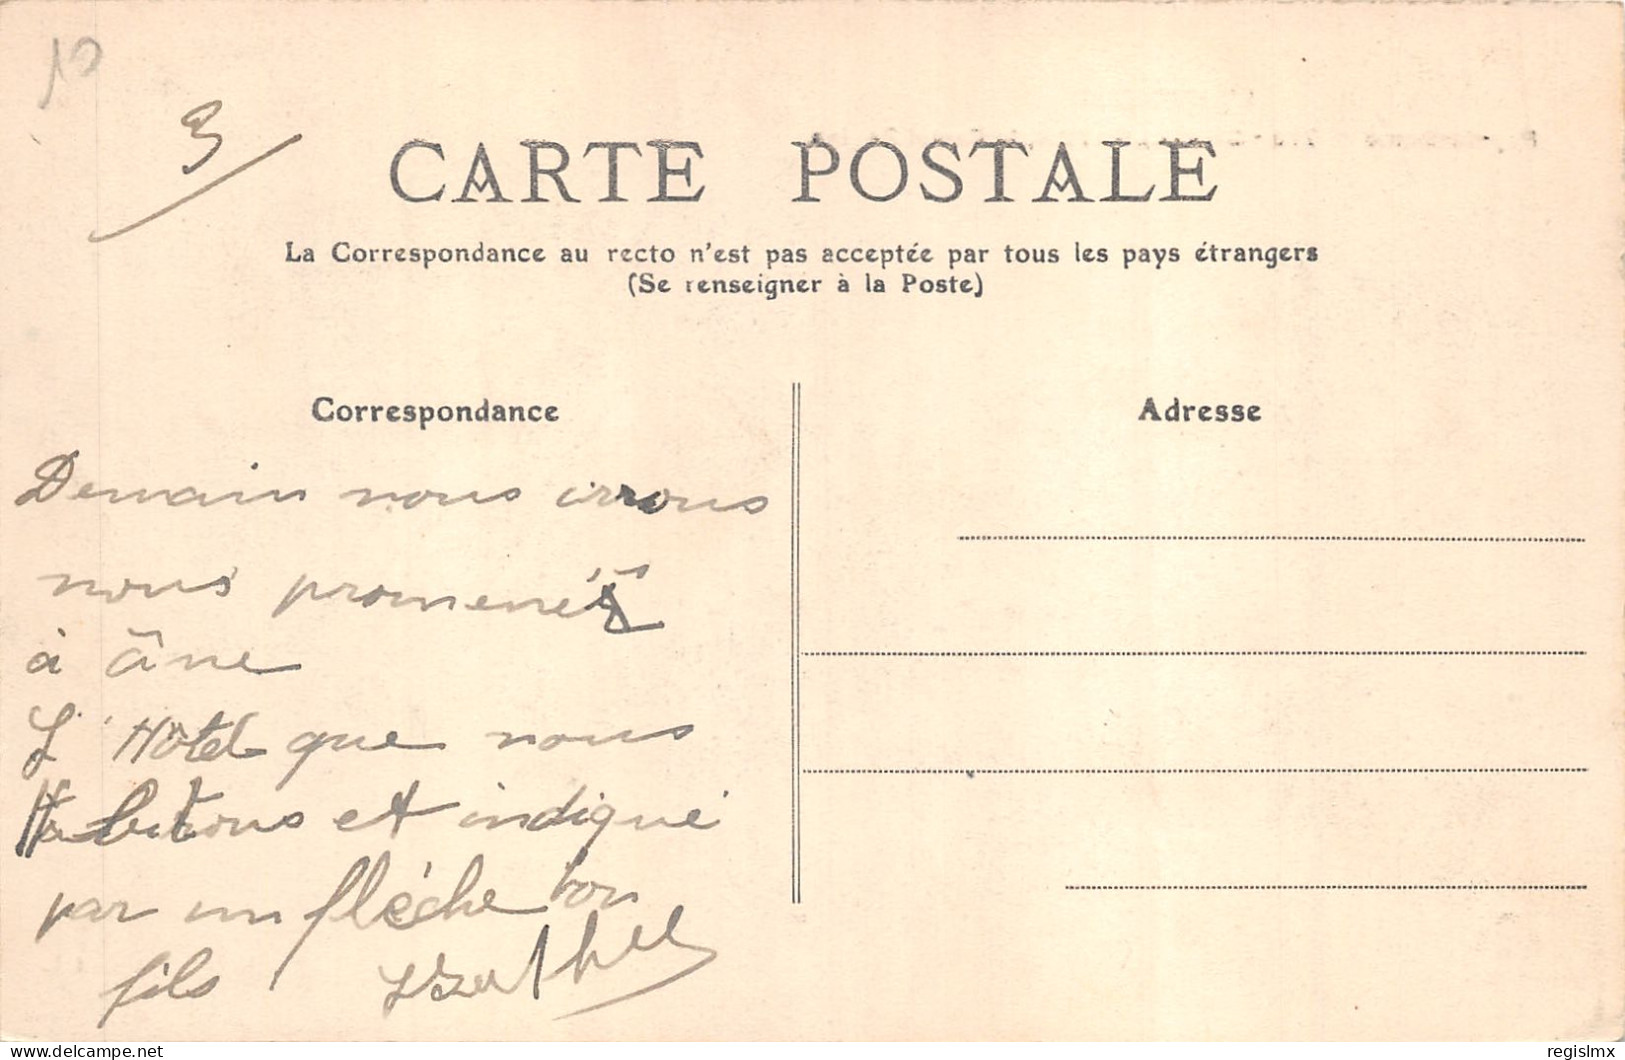 10
3
CARTE POSTALE
La Correspondance au recto n'est pas acceptée par tous les pays étrangers
(Se renseigner à la Poste)
Correspondance
Adresse
Demain nous irrons
nous promenés
à âne
L'Hôtel que nous
Habitons et indiqué
par un flèche ton
fils
delcampe.net
regislmx